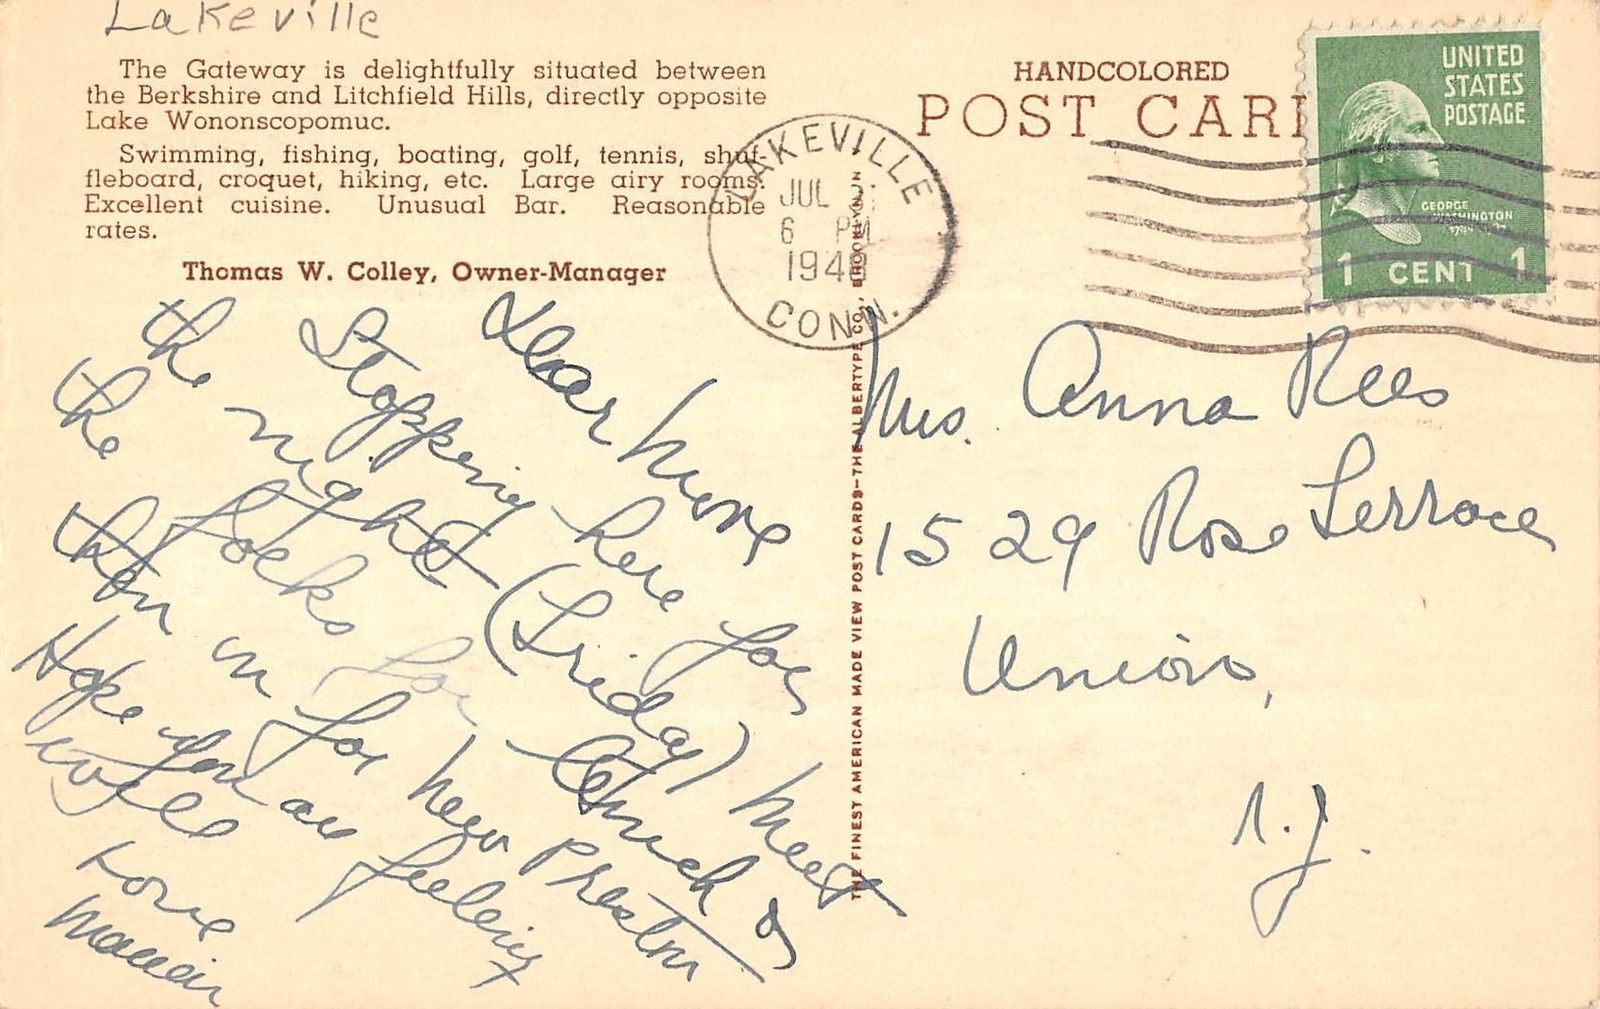 Lakeville
The Gateway is delightfully situated between
the Berkshire and Litchfield Hills, directly opposite
Lake Wononscopomuc.
Swimming, fishing, boating, golf, tennis, shuf-
fleboard, croquet, hiking, etc. Large airy rooms.
Excellent cuisine. Unusual Bar. Reasonable
rates.
Thomas W. Colley, Owner-Manager
Dear
Stopping here for
the night (Friday) Meet
the Locks for &
then on for New Preston
Hope you are feeling
well
Love
LAKEVILLE
JUL
6 PM
CONN.
THE FINEST AMERICAN MADE VIEW POST CARDS—THE ALBERTYPE CO., BROOKLYN, N
HANDCOLORED
POST CAR
UNITED
STATES
POSTAGE
GEORGE
WASHINGTON
1 CENT 1
Mrs. Anna Rees
1529 Rose Terrace
Union,
N.J.